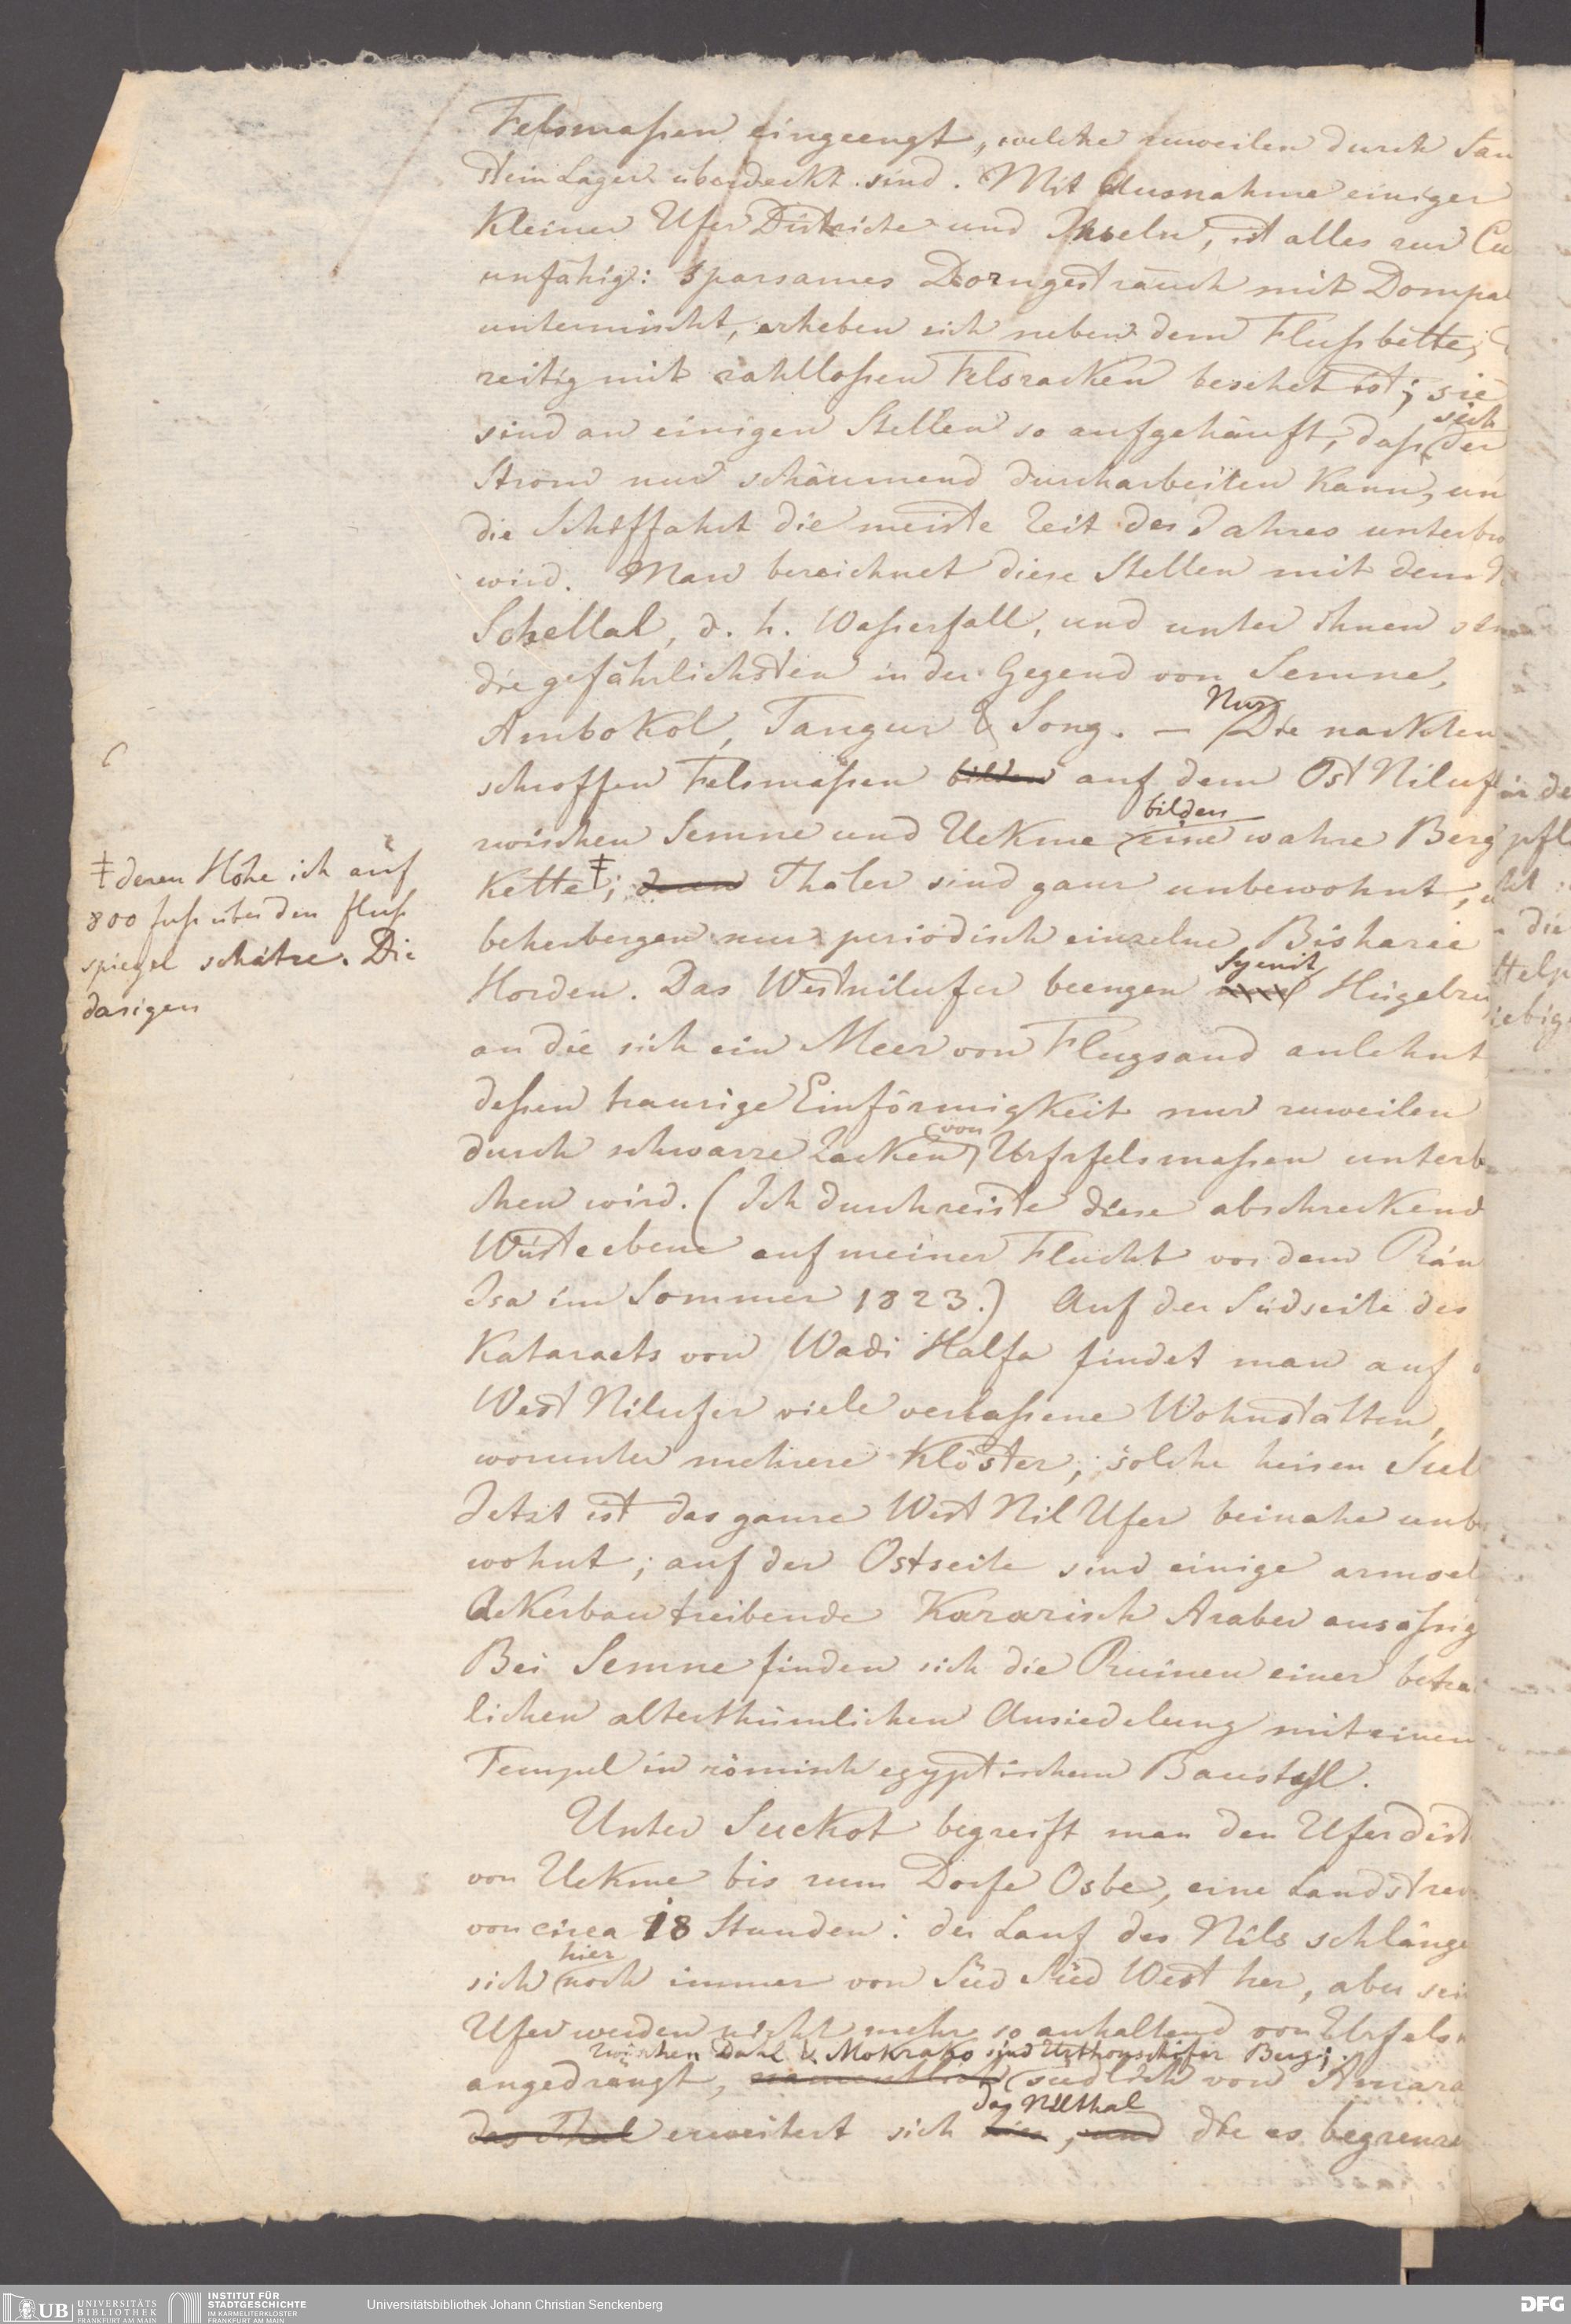 Felsmaßen eingeengt, welche zuweilen durch San
stein Lager überdeckt sind. Mit Ausnahme einiger
kleiner Ufer Districte und Inseln, ist alles zur Cu
unfähig: sparsames Dorngesträuch mit Dompal
untermischt, erheben sich neben dem Flußbette,
zeitig mit zahlloßen Felszacken besehet ist; sie
sind an einigen Stellen so aufgehäuft, daß sich der
Strom nur schäumend durcharbeiten kann, un
die Schiffahrt die meiste Zeit des Jahres unterbro
wird. Man bezeichnet diese Stellen mit dem
Schellal, d. h. Waßerfall, und unter ihnen sin
die gefährlichsten in der Gegend von Semne,
Ambokol, Tangur & Song. — Nur Die nackten
schroffen Felsmaßen bilden auf dem Ost Niluf
zwischen Semne und Uekme bilden eine wahre Berg
Kette ‡; deren Thäler sind ganz unbewohnt,
‡ deren Höhe ich auf
800 fuß über den fluß
spiegel schätze. Die
dasigen
beherbergen nur periodisch einzelne Bisharie
Horden. Das Westnilufer beengen Syenit Hügelzu
an die sich ein Meer von Flugsand anlehnt
deßen traurige Einförmigkeit nur zuweilen
durch schwarze Zacken von Urfelsmaßen unterb
chen wird. (Ich durchreiste diese abschreckend
Wüsteebene auf meiner Flucht vor dem Räu
Isa im Sommer 1823.) Auf der Südseite des
Kataracts von Wadi Halfa findet man auf
West Nilufer viele verlaßene Wohnstätten,
worunter mehrere Klöster; solche heisen Sul
Jetzt ist das ganze West Nil Ufer beinahe unb
wohnt; auf der Ostseite sind einige armsel
Ackerbau treibende Kararisch Araber ansäßig
Bei Semne finden sich die Ruinen einer beträ
lichen alterthümlichen Ansiedelung mit einem
Tempel in römisch egyptischem Baustyl.
Unter Suckot begreift man den Uferdist
von Uekme bis zum Dorfe Osbe, eine Landstrec
von circa 18 Stunden: der Lauf des Nils schlänge
sich hier noch immer von Süd Süd West her, aber sei
Ufer werden nicht mehr so anhaltend von Urfels
zwischen Dahl & Mokrako sind Urthonschiefer Berge;
angedrängt, namentlich südlich von Amara
das Thal erweitert sich hier das Nilthal, und die es begrenze
Universitätsbibliothek Johann Christian Senckenberg
UB UNIVERSITÄTS
BIBLIOTHEK
FRANKFURT AM MAIN
INSTITUT FÜR
STADTGESCHICHTE
IM KARMELITERKLOSTER
FRANKFURT AM MAIN
DFG